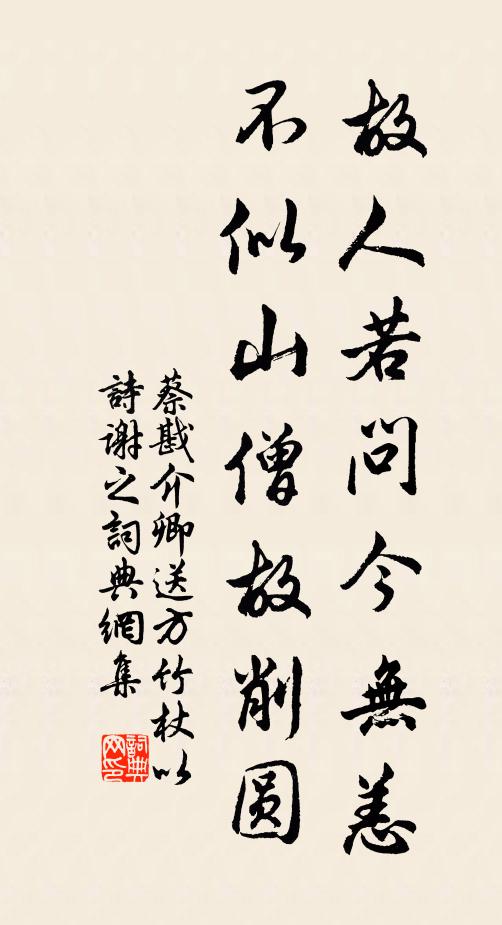 故人若問今無恙
不似山僧故削圓
蔡戡介卿送方竹杖以
詩謝之詞典網集
詞典
网印